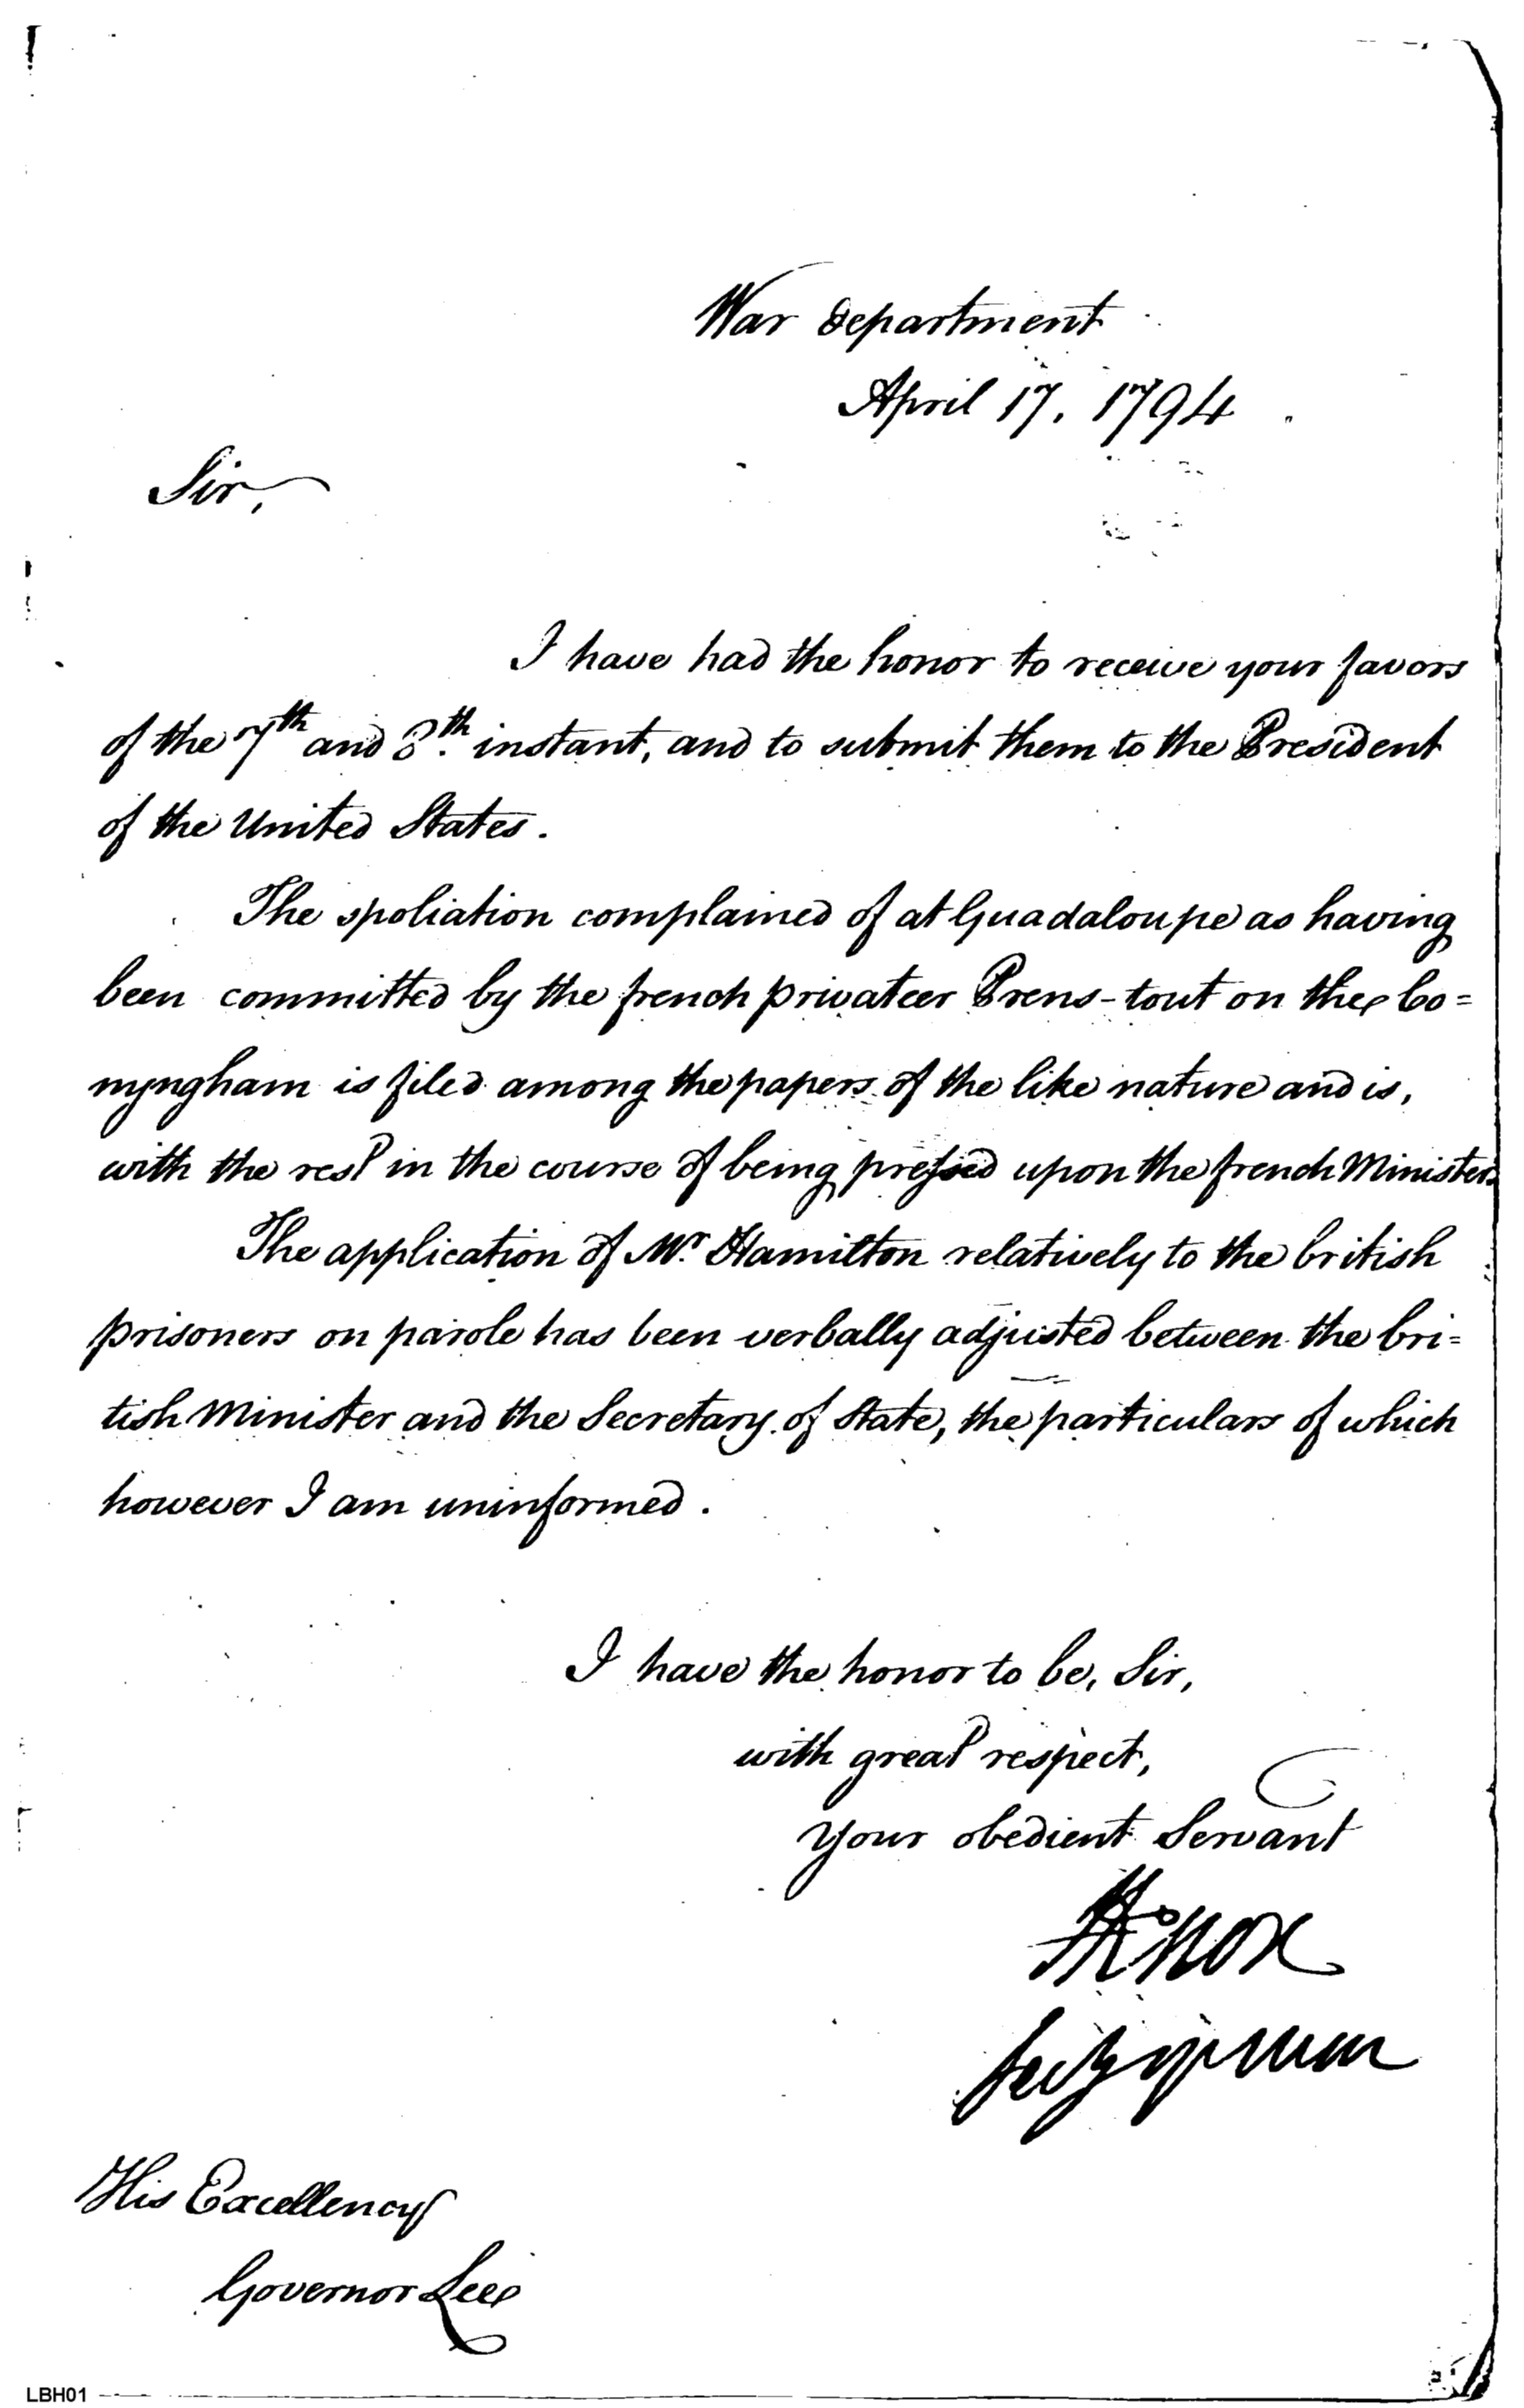 War department
April 17. 1794
Sir,
I have had the honor to receive your favors
of the 7th and 8th. instant, and to submit them to the President
of the United States.
The spoliation complained of at Guadaloupe as having
been committed by the french privateer Prens-tout on the Co=
nyngham is filed among the papers of the like nature and is,
with the rest in the course of being pressed upon the french Minister.
The application of Mr. Hamilton relatively to the british
prisoners on parole has been verbally adjusted between the bri=
tish Minister and the Secretary of State, the particulars of which
however I am uninformed.
I have the honor to be, Sir,
with great respect,
Your obedient Servant
HKnox
Secy of War
His Excellency
Governor Lee
LBH01